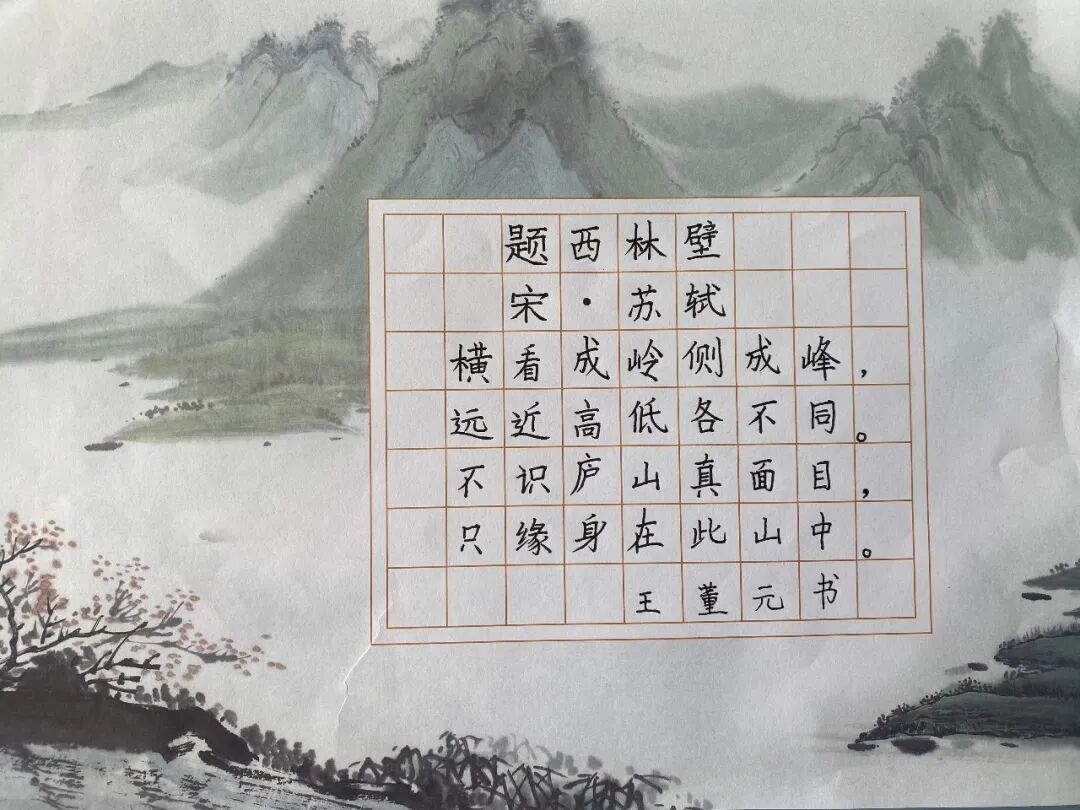 题西林壁
宋·苏轼
横看成岭侧成峰，
远近高低各不同。
不识庐山真面目，
只缘身在此山中。
王董元书